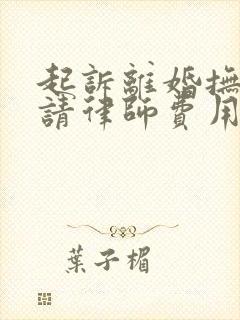 起訴離婚撫
請律師費用
葉子楣